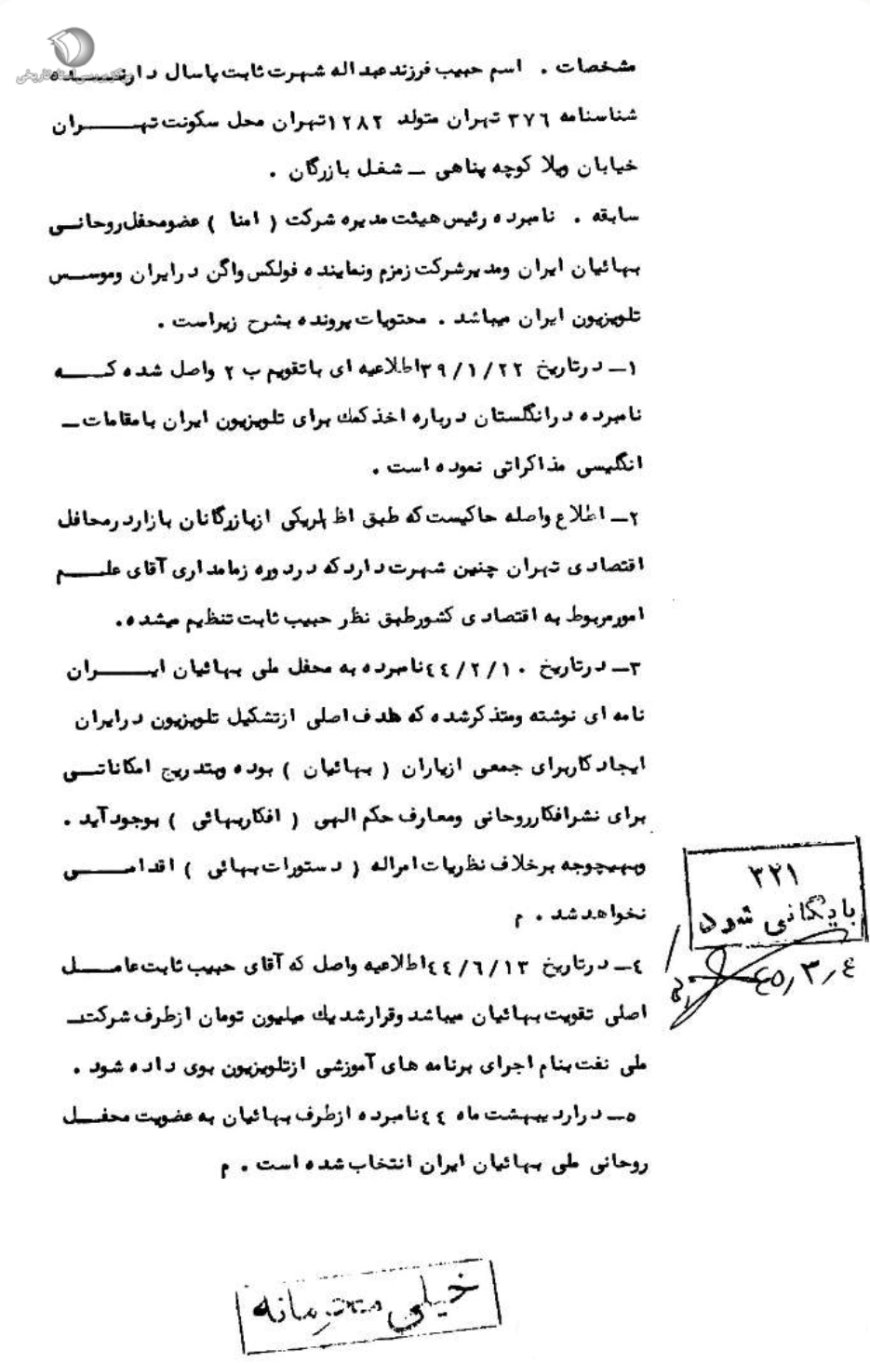 مشخصات . اسم حبیب فرزند عبداله شهرت ثابت پاسال دارنده
شناسنامه ۳۷۶ تهران متولد ۱۲۸۲ تهران محل سکونت تهران
خیابان ویلا کوچه پناهی ـ شغل بازرگان .
سابقه . نامبرده رئیس هیئت مدیره شرکت ( امنا ) عضو محفل روحانی
بهائیان ایران ومدیرشرکت زمزم ونماینده فولکس واگن درایران وموسس
تلویزیون ایران میباشد . محتویات پرونده بشرح زیراست .
۱ـ درتاریخ ۳۹/۱/۲۲ اطلاعیه ای باتقویم ب ۲ واصل شده که
نامبرده درانگلستان درباره اخذ کمك برای تلویزیون ایران بامقامات ـ
انگلیسی مذاکراتی نموده است .
۲ـ اطلاع واصله حاکیست که طبق اظهاریکی ازبازرگانان بازار درمحافل
اقتصادی تهران چنین شهرت دارد که دردوره زمامداری آقای علم
امورمربوط به اقتصادی کشورطبق نظر حبیب ثابت تنظیم میشده .
۳ـ درتاریخ ۴۴/۲/۱۰ نامبرده به محفل ملی بهائیان ایران
نامه ای نوشته ومتذکرشده که هدف اصلی ازتشکیل تلویزیون درایران
ایجاد کاربرای جمعی ازیاران ( بهائیان ) بوده وبتدریج امکاناتی
برای نشرافکارروحانی ومعارف حکم الهی ( افکاربهائی ) بوجودآید .
وبهیچوجه برخلاف نظریات امراله ( دستورات بهائی ) اقدامی
نخواهد شد . م
۴ـ درتاریخ ۴۴/۶/۱۳ اطلاعیه واصل که آقای حبیب ثابت عامل
اصلی تقویت بهائیان میباشد وقرارشد یك میلیون تومان ازطرف شرکت ـ
ملی نفت بنام اجرای برنامه های آموزشی ازتلویزیون بوی داده شود .
۵ـ دراردیبهشت ماه ۴۴ نامبرده ازطرف بهائیان به عضویت محفل
روحانی ملی بهائیان ایران انتخاب شده است . م
۳۲۱
بایگانی شود
۴۵٫۳٫۴
خیلی محرمانه